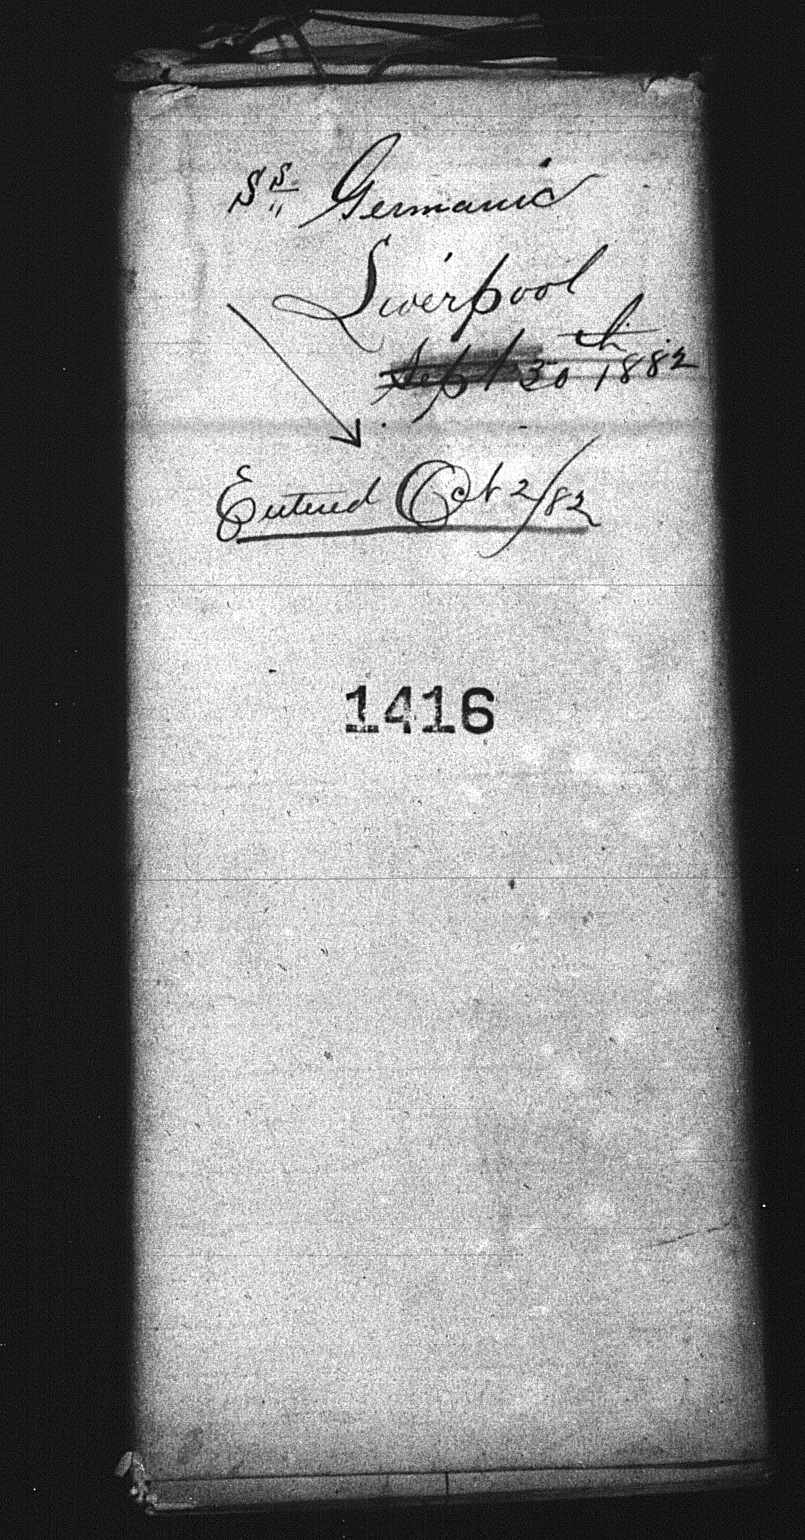 SS. Germanic
Liverpool
Sept 30th 1882
Entered Oct 2/82
1416